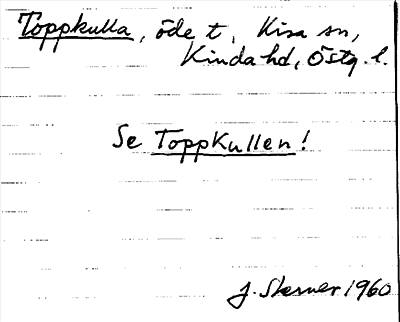 Toppkulla, öde t, Kisa sn,
Kinda hd, Östg. l.
Se Toppkullen!
J. Sterner 1960